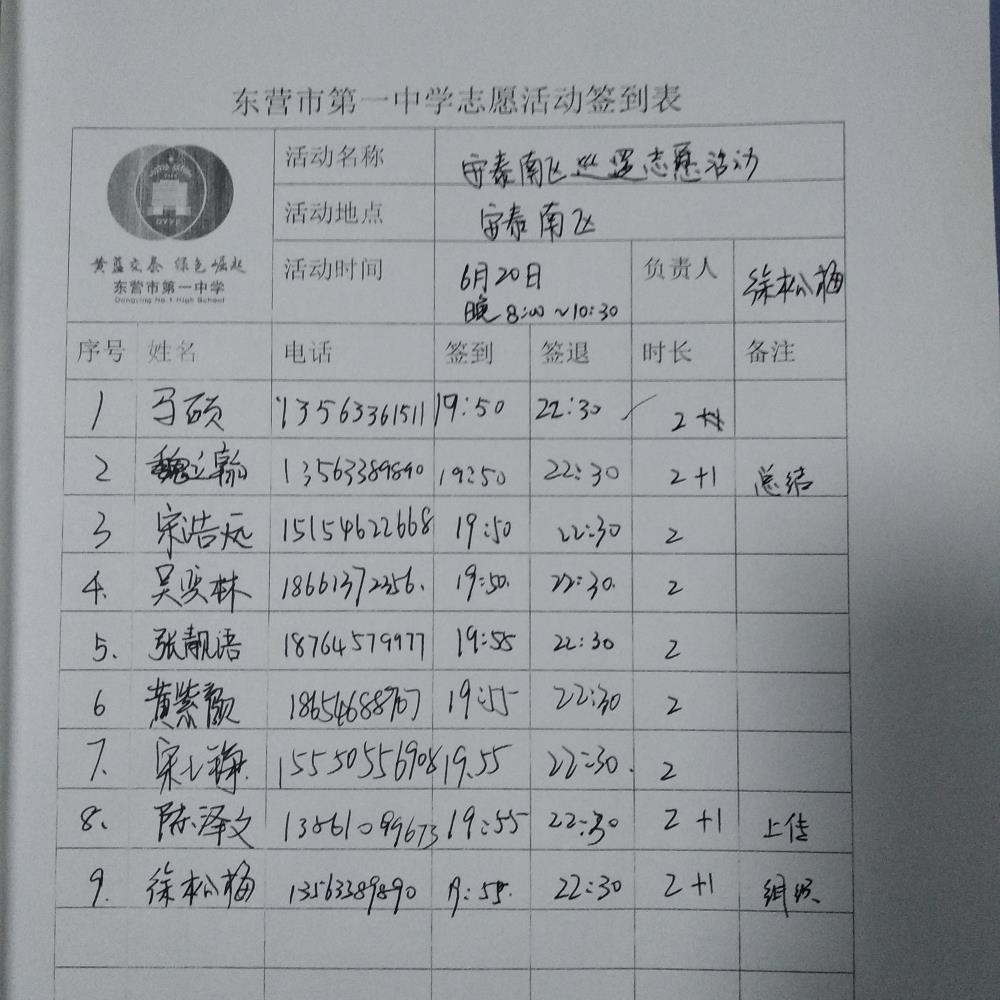 东营市第一中学志愿活动签到表
活动名称 安泰南区巡逻志愿活动
活动地点 安泰南区
活动时间 6月20日 负责人 徐松梅
晚8:00~10:30
黄蓝交泰 绿色崛起
东营市第一中学
Dongying No.1 High School
序号 姓名 电话 签到 签退 时长 备注
1 马硕 13563361511 19:50 22:30 2
2 魏立翰 13563389890 19:50 22:30 2+1 总结
3 宋浩远 15154622668 19:50 22:30 2
4. 吴奕林 18661372256. 19:50. 22:30. 2
5. 张靓语 18764579977 19:55 22:30 2
6 黄紫颜 18654688767 19:55 22:30 2
7. 宋 15550556908 19.55 22:30. 2
8. 陈泽文 13561099673 19:55 22:30 2+1 上传
9. 徐松梅 13563389890 19:55. 22:30 2+1 组织